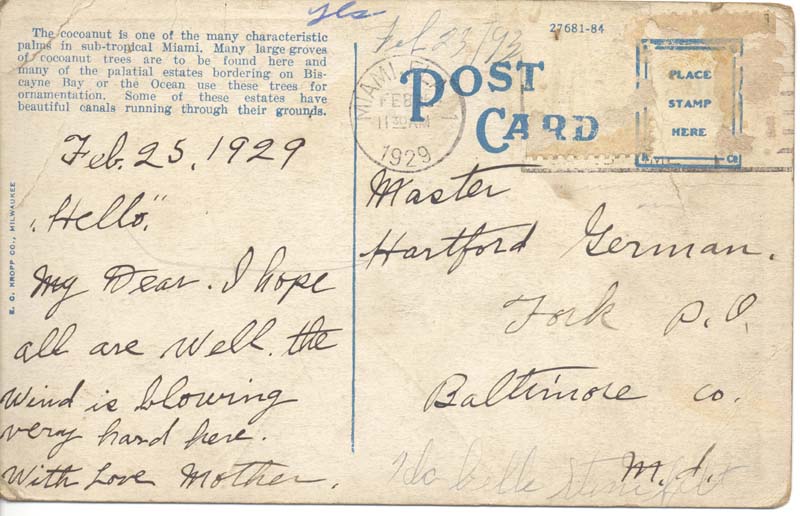 yes
Feb 23 '93
27681-84
The cocoanut is one of the many characteristic
palms in sub-tropical Miami. Many large groves
of cocoanut trees are to be found here and
many of the palatial estates bordering on Bis-
cayne Bay or the Ocean use these trees for
ornamentation. Some of these estates have
beautiful canals running through their grounds.
POST
CARD
PLACE
STAMP
HERE
MIAMI, FLA.
FEB
11 30 AM
1929
E. C. KROPP CO., MILWAUKEE
Feb. 25, 1929
"Hello,"
My Dear. I hope
all are Well. the
Wind is blowing
very hard here.
With Love Mother.
Master
Hartford German.
Fork P.O.
Baltimore Co.
Md.